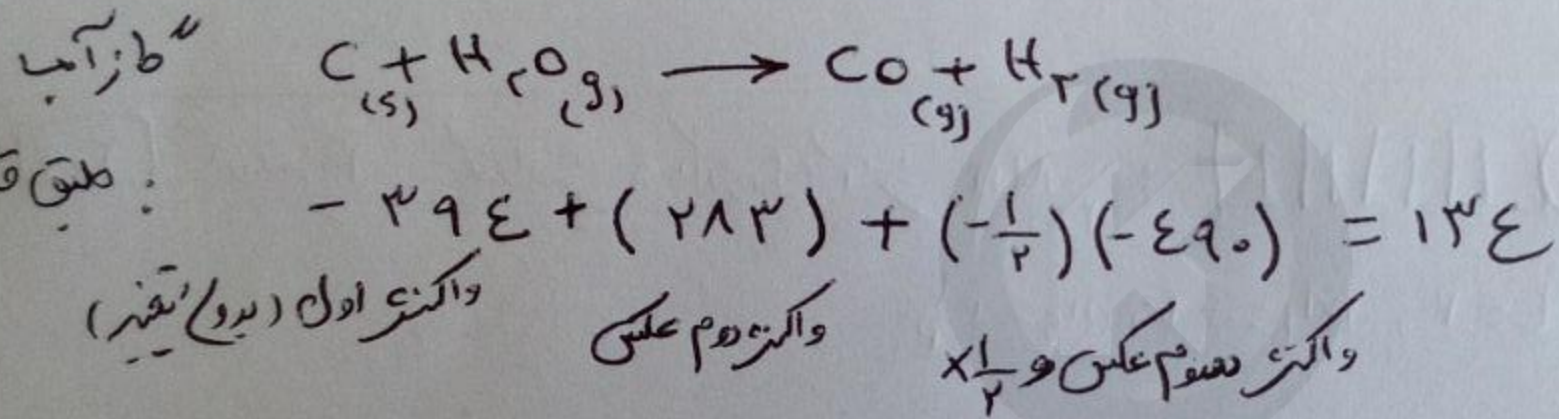 گاز آب C(s) + H۲O(g) → CO(g) + H۲(g)
طبق ق :
- ۳۹٤ + (۲۸۳) + (-۱/۲)(-٤۹۰) = ۱۳٤
واکنش اول (بدون تغییر) واکنش دوم عکس واکنش سوم عکس و ×۱/۲